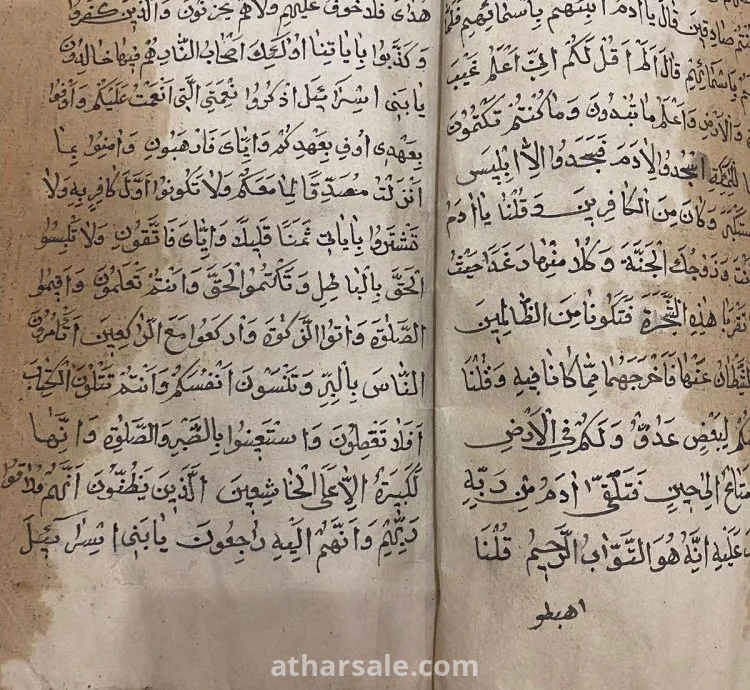 صادقين قال يا ادم انبئهم باسمائهم فلما
باسمائهم قال الم اقل لكم اني اعلم غيب
والارض واعلم ما تبدون وما كنتم تكتمون
للملئكة اسجدوا لادم فسجدوا الا ابليس
وكان من الكافرين وقلنا يا ادم
وزوجك الجنة وكلا منها رغدا حيث
تقربا هذه الشجرة فتكونا من الظالمين
الشيطان عنها فاخرجهما مما كانا فيه وقلنا
لبعض عدو ولكم في الارض
الى حين فتلقى ادم من ربه
عليه انه هو التواب الرحيم قلنا
اهبطو
هداى فلا خوف عليهم ولا هم يحزنون والذين كفروا
وكذبوا باياتنا اولئك اصحاب النار هم فيها خالدون
يا بنى اسرائيل اذكروا نعمتى التى انعمت عليكم واوفوا
بعهدى اوف بعهدكم واياى فارهبون وامنوا بما
انزلت مصدقا لما معكم ولا تكونوا اول كافر به ولا
تشتروا باياتى ثمنا قليلا واياى فاتقون ولا تلبسوا
الحق بالباطل وتكتموا الحق وانتم تعلمون واقيموا
الصلوة واتوا الزكوة واركعوا مع الراكعين اتامرون
الناس بالبر وتنسون انفسكم وانتم تتلون الكتاب
افلا تعقلون واستعينوا بالصبر والصلوة وانها
لكبيرة الا على الخاشعين الذين يظنون انهم ملاقوا
ربهم وانهم اليه راجعون يا بنى اسرائيل
atharsale.com